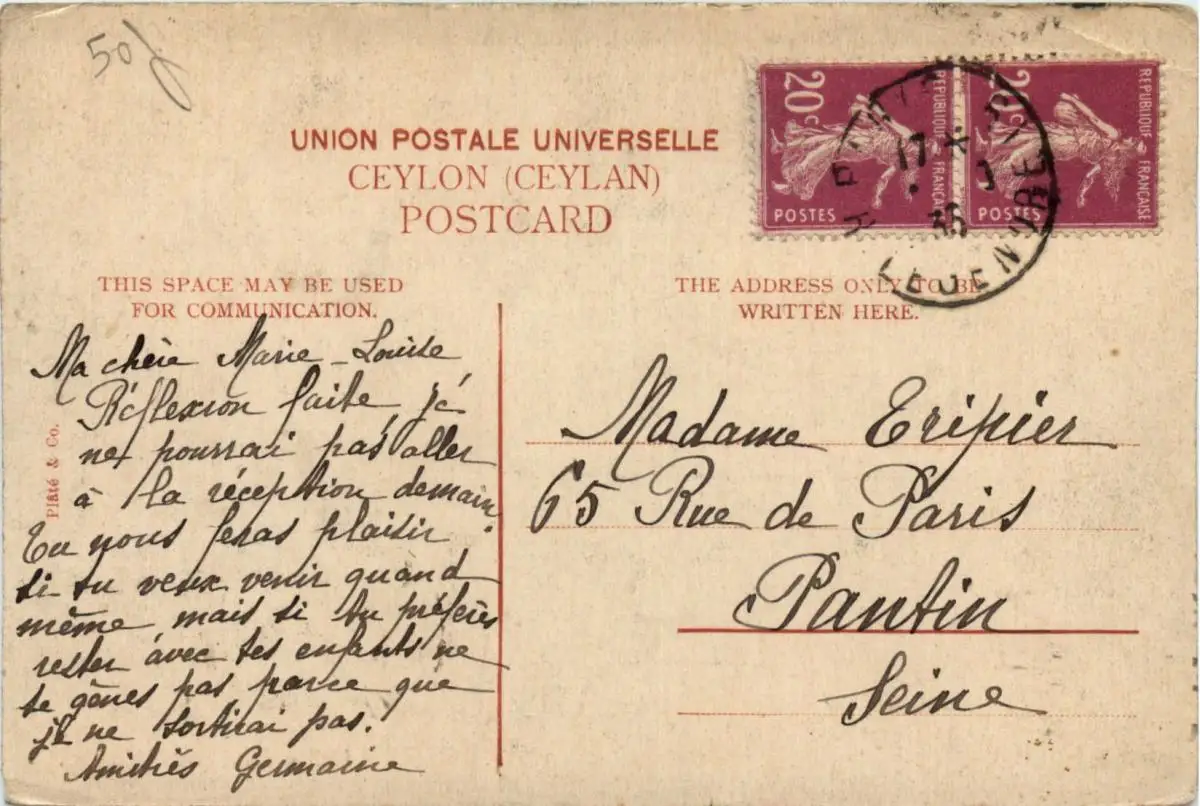 50f
UNION POSTALE UNIVERSELLE
CEYLON (CEYLAN)
POSTCARD
20c
REPUBLIQUE FRANÇAISE
POSTES
20c
REPUBLIQUE FRANÇAISE
POSTES
17
36
THIS SPACE MAY BE USED
FOR COMMUNICATION.
THE ADDRESS ONLY TO BE
WRITTEN HERE.
Plâté & Co.
Ma chère Marie-Louise
Réflexion faite je
ne pourrai pas aller
à la réception demain.
Tu nous feras plaisir
si tu veux venir quand
même mais si tu préfères
rester avec tes enfants ne
te gênes pas parce que
je ne sortirai pas.
Amitiés Germaine
Madame Eripier
65 Rue de Paris
Pantin
Seine